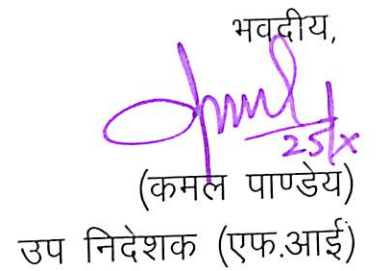 भवदीय,
25/x
(कमल पाण्डेय)
उप निदेशक (एफ.आई)